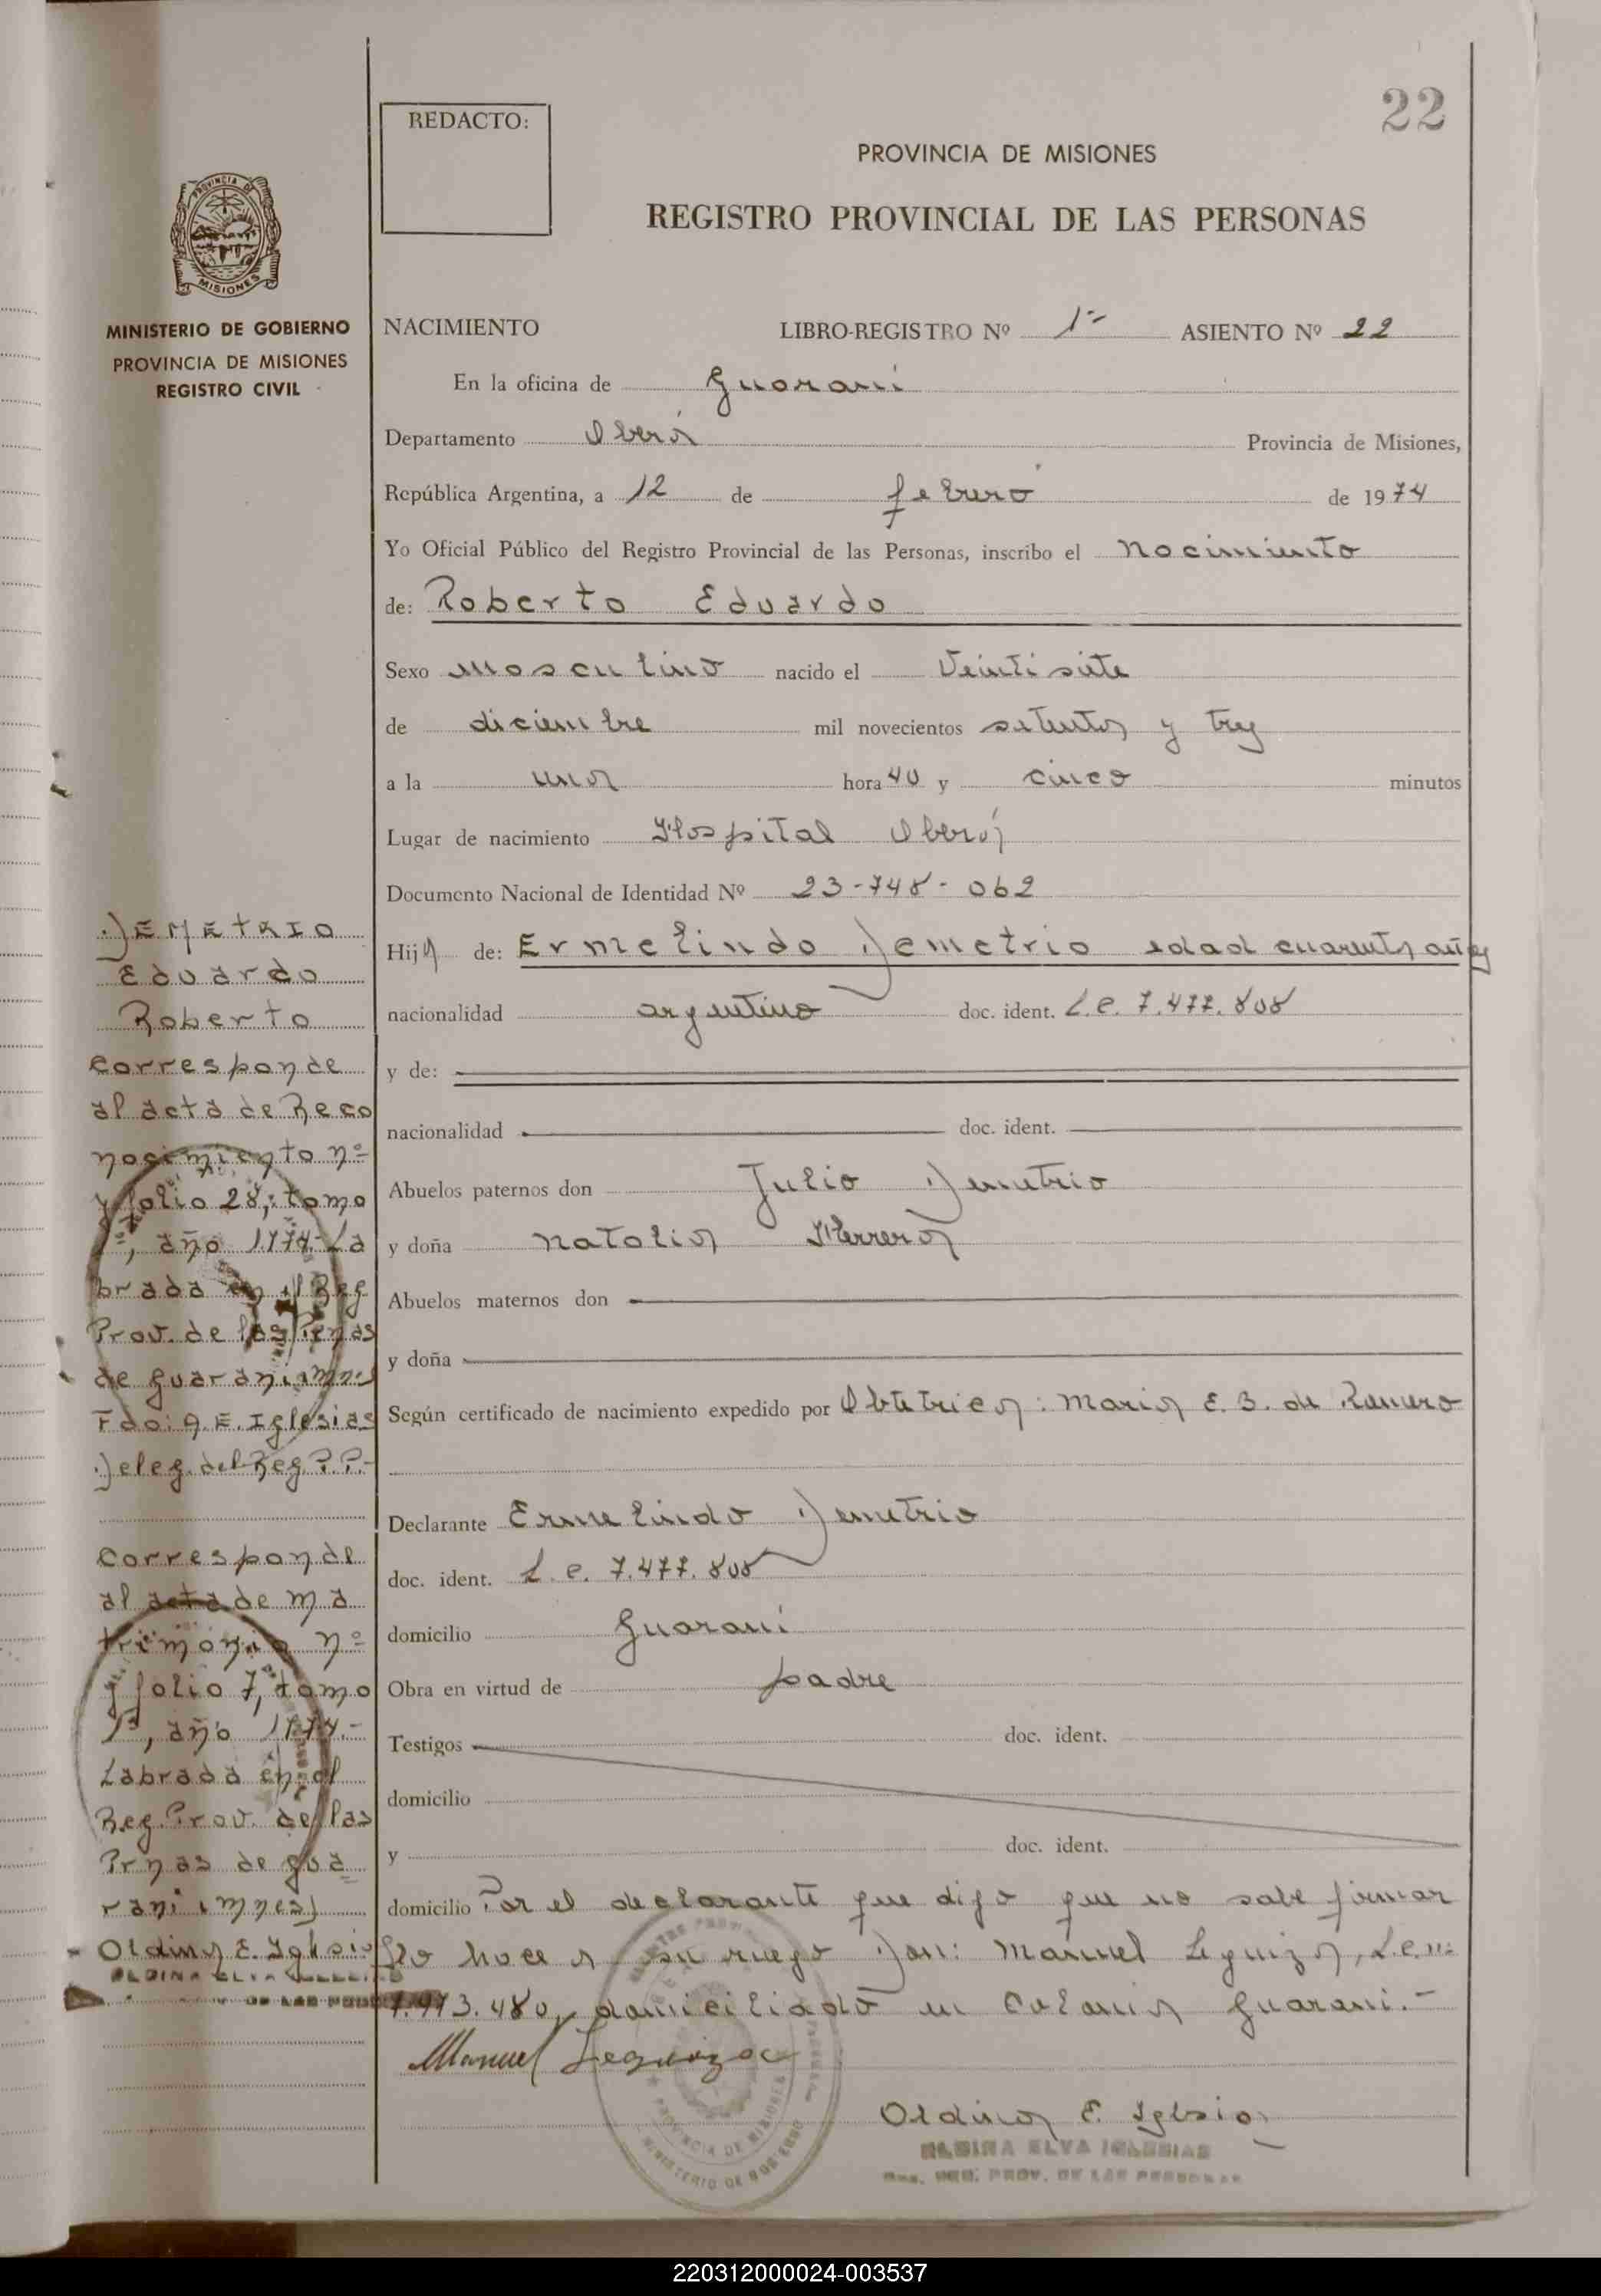 22
REDACTO:
PROVINCIA DE MISIONES
REGISTRO PROVINCIAL DE LAS PERSONAS
PROVINCIA DE
MISIONES
MINISTERIO DE GOBIERNO
PROVINCIA DE MISIONES
REGISTRO CIVIL
NACIMIENTO LIBRO-REGISTRO Nº 1º- ASIENTO Nº 22
En la oficina de Guaraní
Departamento Oberá Provincia de Misiones,
República Argentina, a 12 de febrero de 1974
Yo Oficial Público del Registro Provincial de las Personas, inscribo el nacimiento
de: Roberto Eduardo
Sexo masculino nacido el veintisiete
de diciembre mil novecientos setenta y tres
a la una hora 40 y cinco minutos
Lugar de nacimiento Hospital Oberá
Documento Nacional de Identidad Nº 23-748-062
Hijo de: Ermelindo Demetrio edad cuarenta años
nacionalidad argentino doc. ident. L.e. 7.477.808
y de:
nacionalidad doc. ident.
Abuelos paternos don Julio Demetrio
y doña Natalia Herrera
Abuelos maternos don
y doña
Según certificado de nacimiento expedido por Obtetrica: Maria E. B. de Ramero
Declarante Ermelindo Demetrio
doc. ident. L.e. 7.477.808
domicilio Guaraní
Obra en virtud de padre
Testigos doc. ident.
domicilio
y doc. ident.
domicilio Por el declarante que digo que no sabe firmar
lo hace a su ruego Don: Manuel Leguiza, L.e.nº
7.973.480, domiciliado en Colonia Guaraní.-
Manuel Leguiza
Oldina E. Iglesias
ELVA IGLESIAS
REG. PROV. DE LAS PERSONAS
PROVINCIA DE MISIONES
MINISTERIO DE GOBIERNO
DEMETRIO
Eduardo
Roberto
Corresponde
al acta de Reco
nocimiento nº
y folio 28, tomo
1º, año 1974-La
brada en el Reg
Prov. de las Prnas
de Guarani (Mnes)
Fdo: O.E. Iglesias
Deleg. del Reg. P.P.-
Corresponde
al acta de ma
trimonio nº
y folio 7, tomo
1º, año 1974.-
Labrada en el
Reg. Prov. de las
Prnas de Gua
rani (Mnes)
Oldina E. Iglesia
220312000024-003537